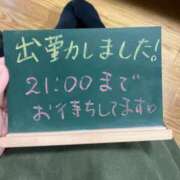 出勤しました!
21:00まで
お待ちしてます♡